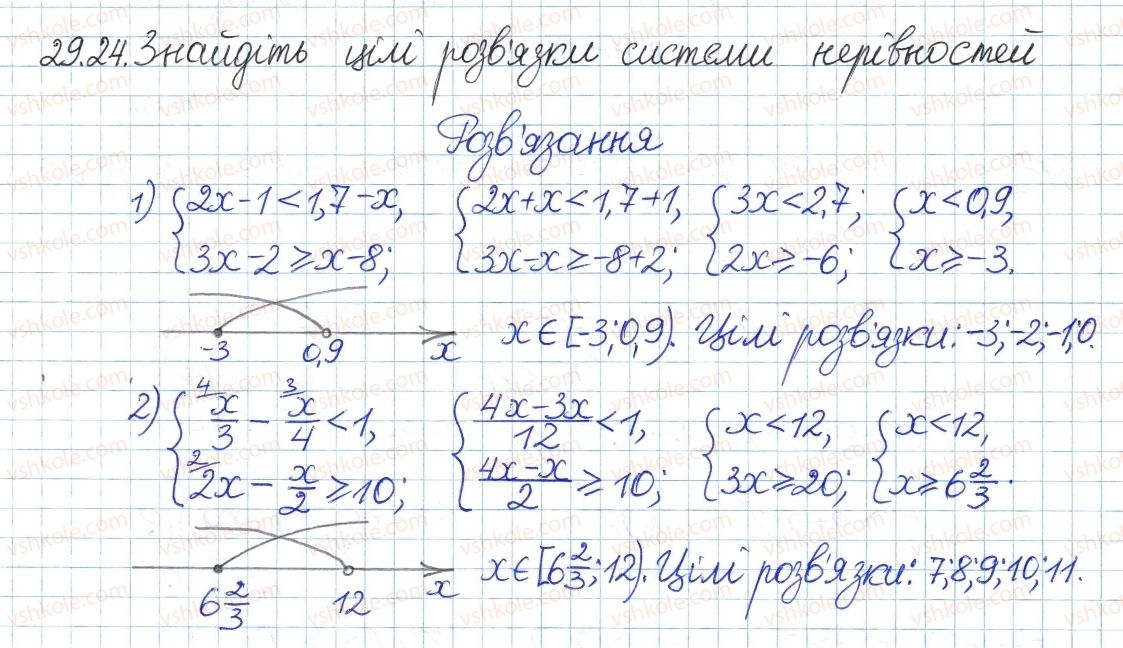 29.24. Знайдіть цілі розв'язки системи нерівностей
Розв'язання
1) {2x-1<1,7-x, {2x+x<1,7+1, {3x<2,7; {x<0,9,
{3x-2≥x-8; {3x-x≥-8+2; {2x≥-6; {x≥-3.
-3 0,9 x x∈[-3;0,9). Цілі розв'язки: -3;-2;-1;0.
2) {⁴x/3 - ³x/4 <1, {(4x-3x)/12 <1, {x<12, {x<12,
{²2x - x/2 ≥10; {(4x-x)/2 ≥ 10; {3x≥20; {x≥6 2/3.
6 2/3 12 x x∈[6 2/3;12). Цілі розв'язки: 7;8;9;10;11.
vshkole.com